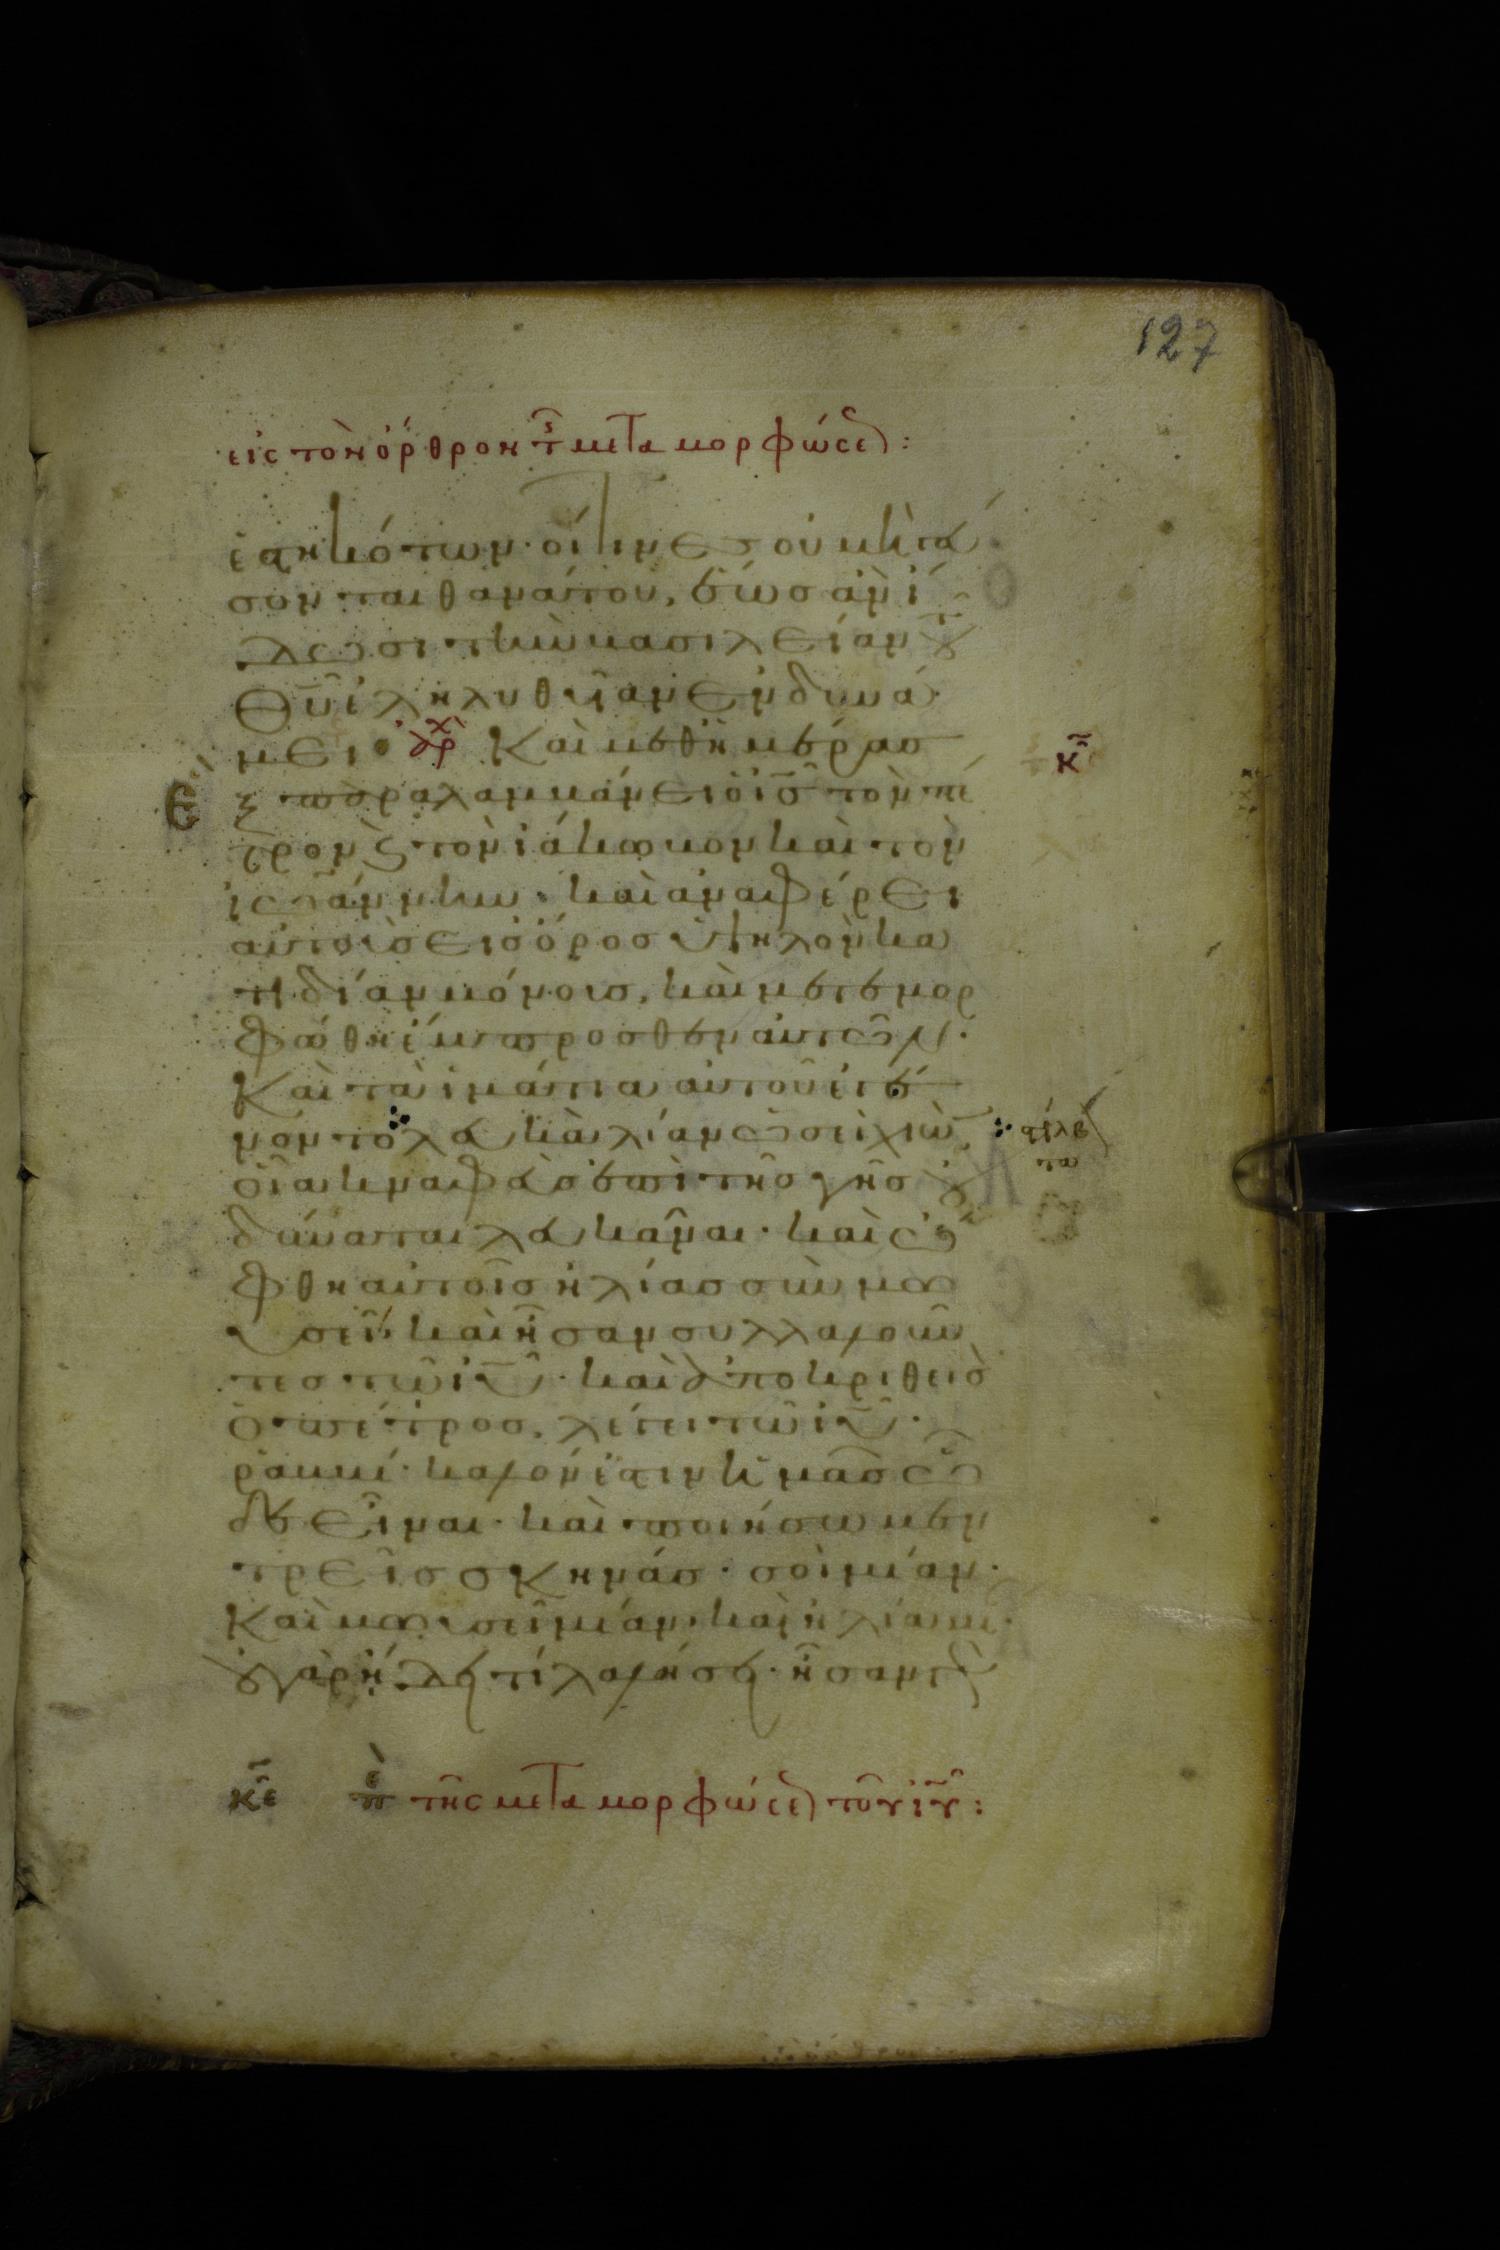 127
εἰς τὸν ὄρθρον τ̑ μεταμορφώσε:
ἑστηκότων· οἵτινες οὐ μὴ γεύ
σονται θανάτου, ἕως ἂν ἴ
δωσι τὴν βασιλείαν τοῦ
θυ̅ ἐληλυθυῖαν ἐν δυνά
μει· ἀρχ Καὶ μεθ' ἡμέρας
κ̅
ἓξ παραλαμβάνει ὁ ι̅ς̅ τὸν πέ
τρον κ̀ τὸν ἰάκωβον καὶ τὸν
ἰωάννην· καὶ ἀναφέρει
αὐτοὺς εἰς ὄρος ὑψηλὸν κα
τ' ἰδίαν μόνους, καὶ μετεμορ
φώθη ἔμπροσθεν αὐτῶν·
Καὶ τὰ ἱμάτια αὐτοῦ ἐγέ
νοντο λευκὰ λίαν ὡσεὶ χιὼ
στίλβοντα
οἷα κναφεὺς ἐπὶ τῆς γῆς οὐ
δύναται λευκᾶναι· καὶ ὤ
φθη αὐτοῖς ἠλίας σὺν μω
σεῖ, καὶ ἦσαν συλλαλοῦν
τες τῶ ι̅υ̅· καὶ ἀποκριθεὶς
ὁ πέτρος, λέγει τῶ ι̅υ̅·
ῥαββί· καλόν ἐστιν ἡμᾶς ὧ
δε εἶναι· καὶ ποιήσωμεν
τρεῖς σκηνάς· σοὶ μίαν·
Καὶ μωσεῖ μίαν· καὶ ἠλία μί·
οὐ γὰρ ἤδει τί λαλήσει· ἦσαν γὰρ
κ̅ε περὶ τῆς μεταμορφώσε τοῦ ι̅υ̅: